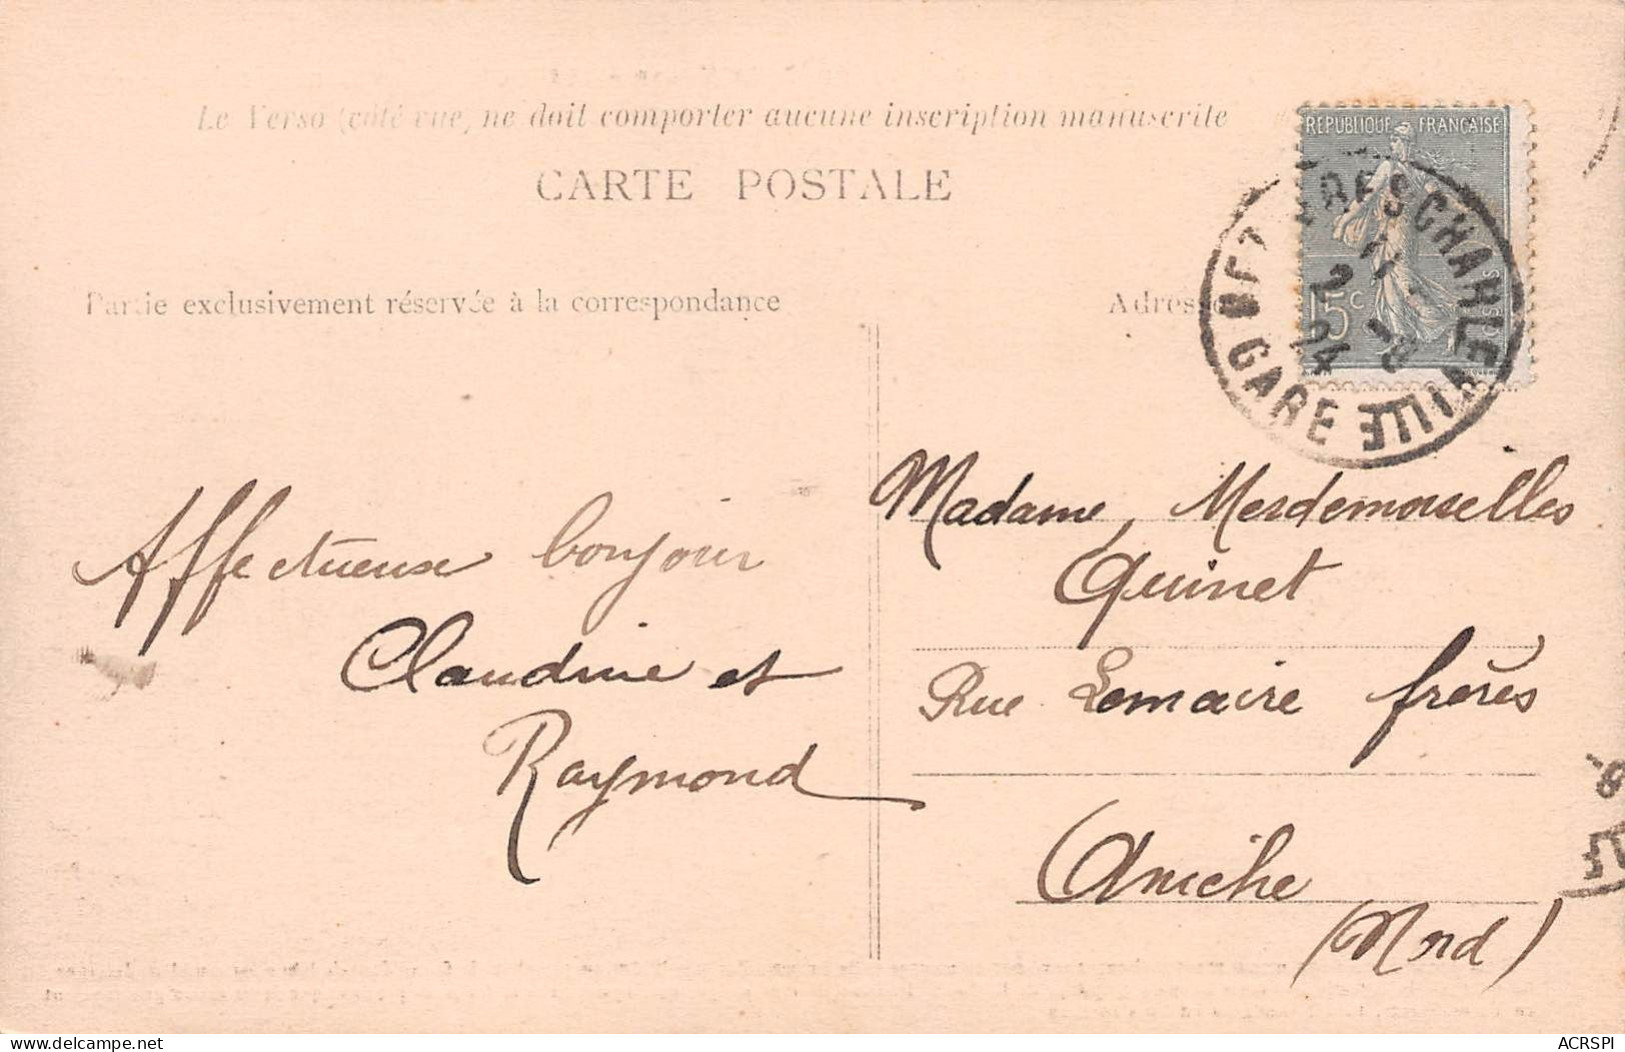 Le Verso (côté vue) ne doit comporter aucune inscription manuscrite
CARTE POSTALE
Partie exclusivement réservée à la correspondance
Adresse
REPUBLIQUE FRANÇAISE
15c
CHARLEVILLE GARE
Affectueux bonjour
Claudine et
Raymond
Madame, Mesdemoiselles
Quinet
Rue Lemaire frères
Aniche
(Nord)
delcampe.net
ACRSPI